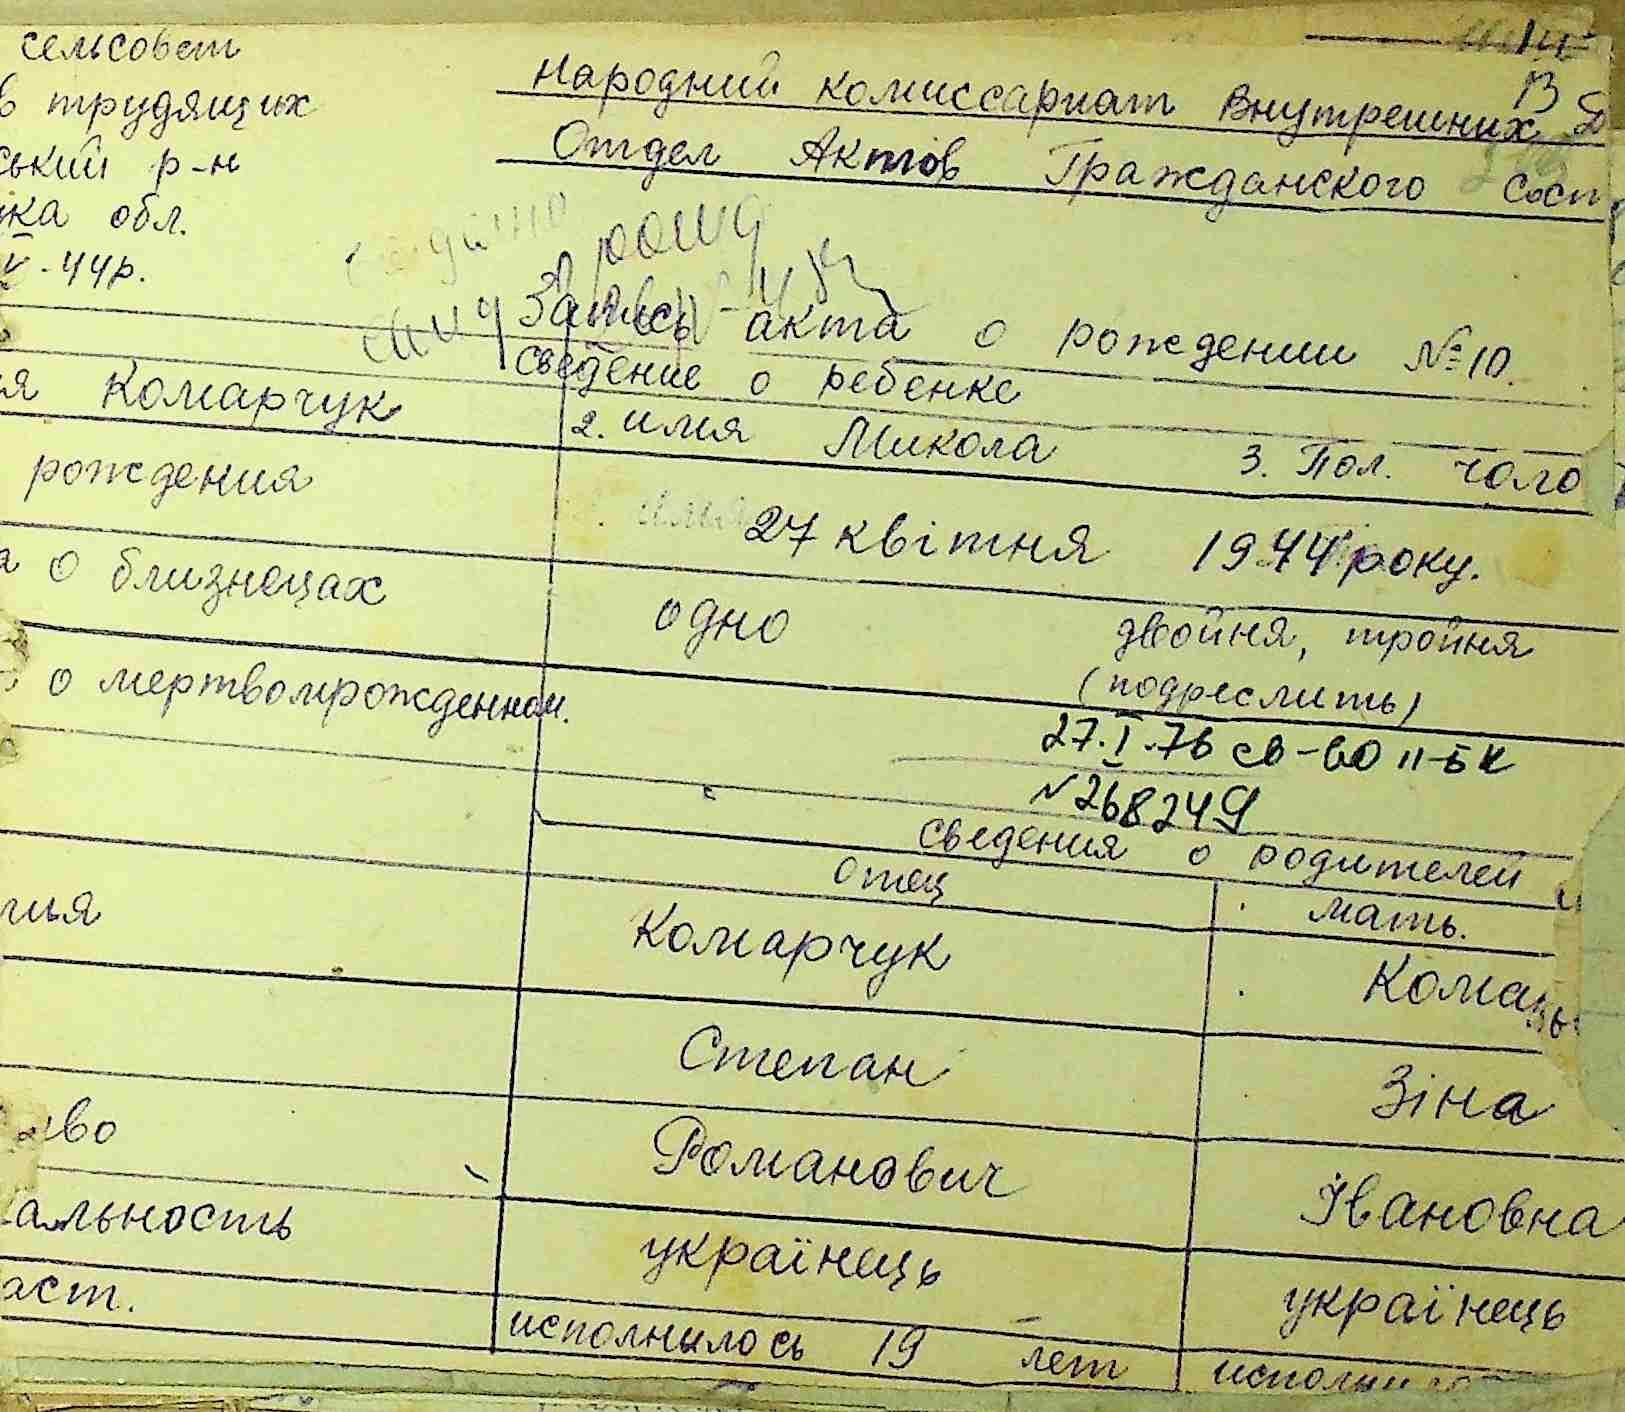 сельсовет
в трудящихся
ський р-н
обл.
44р.
Народний комиссариат Внутрешних
Отдел Актов Гражданского Сост
Запись акта о рождении №10.
сведение о ребенке
Комарчук 2. имя Микола 3. Пол. чоло
рождения 27 квітня 1944 року.
о близнецах одно двойня, тройня
(подреслить)
о мертвомрожденном.
27.I.76 св-во II-БК
№268249
сведения о родителей
отец мать.
Комарчук Комарч
Степан Зіна
Романович Івановна
альность українець українець
аст. исполнилось 19 лет исполни